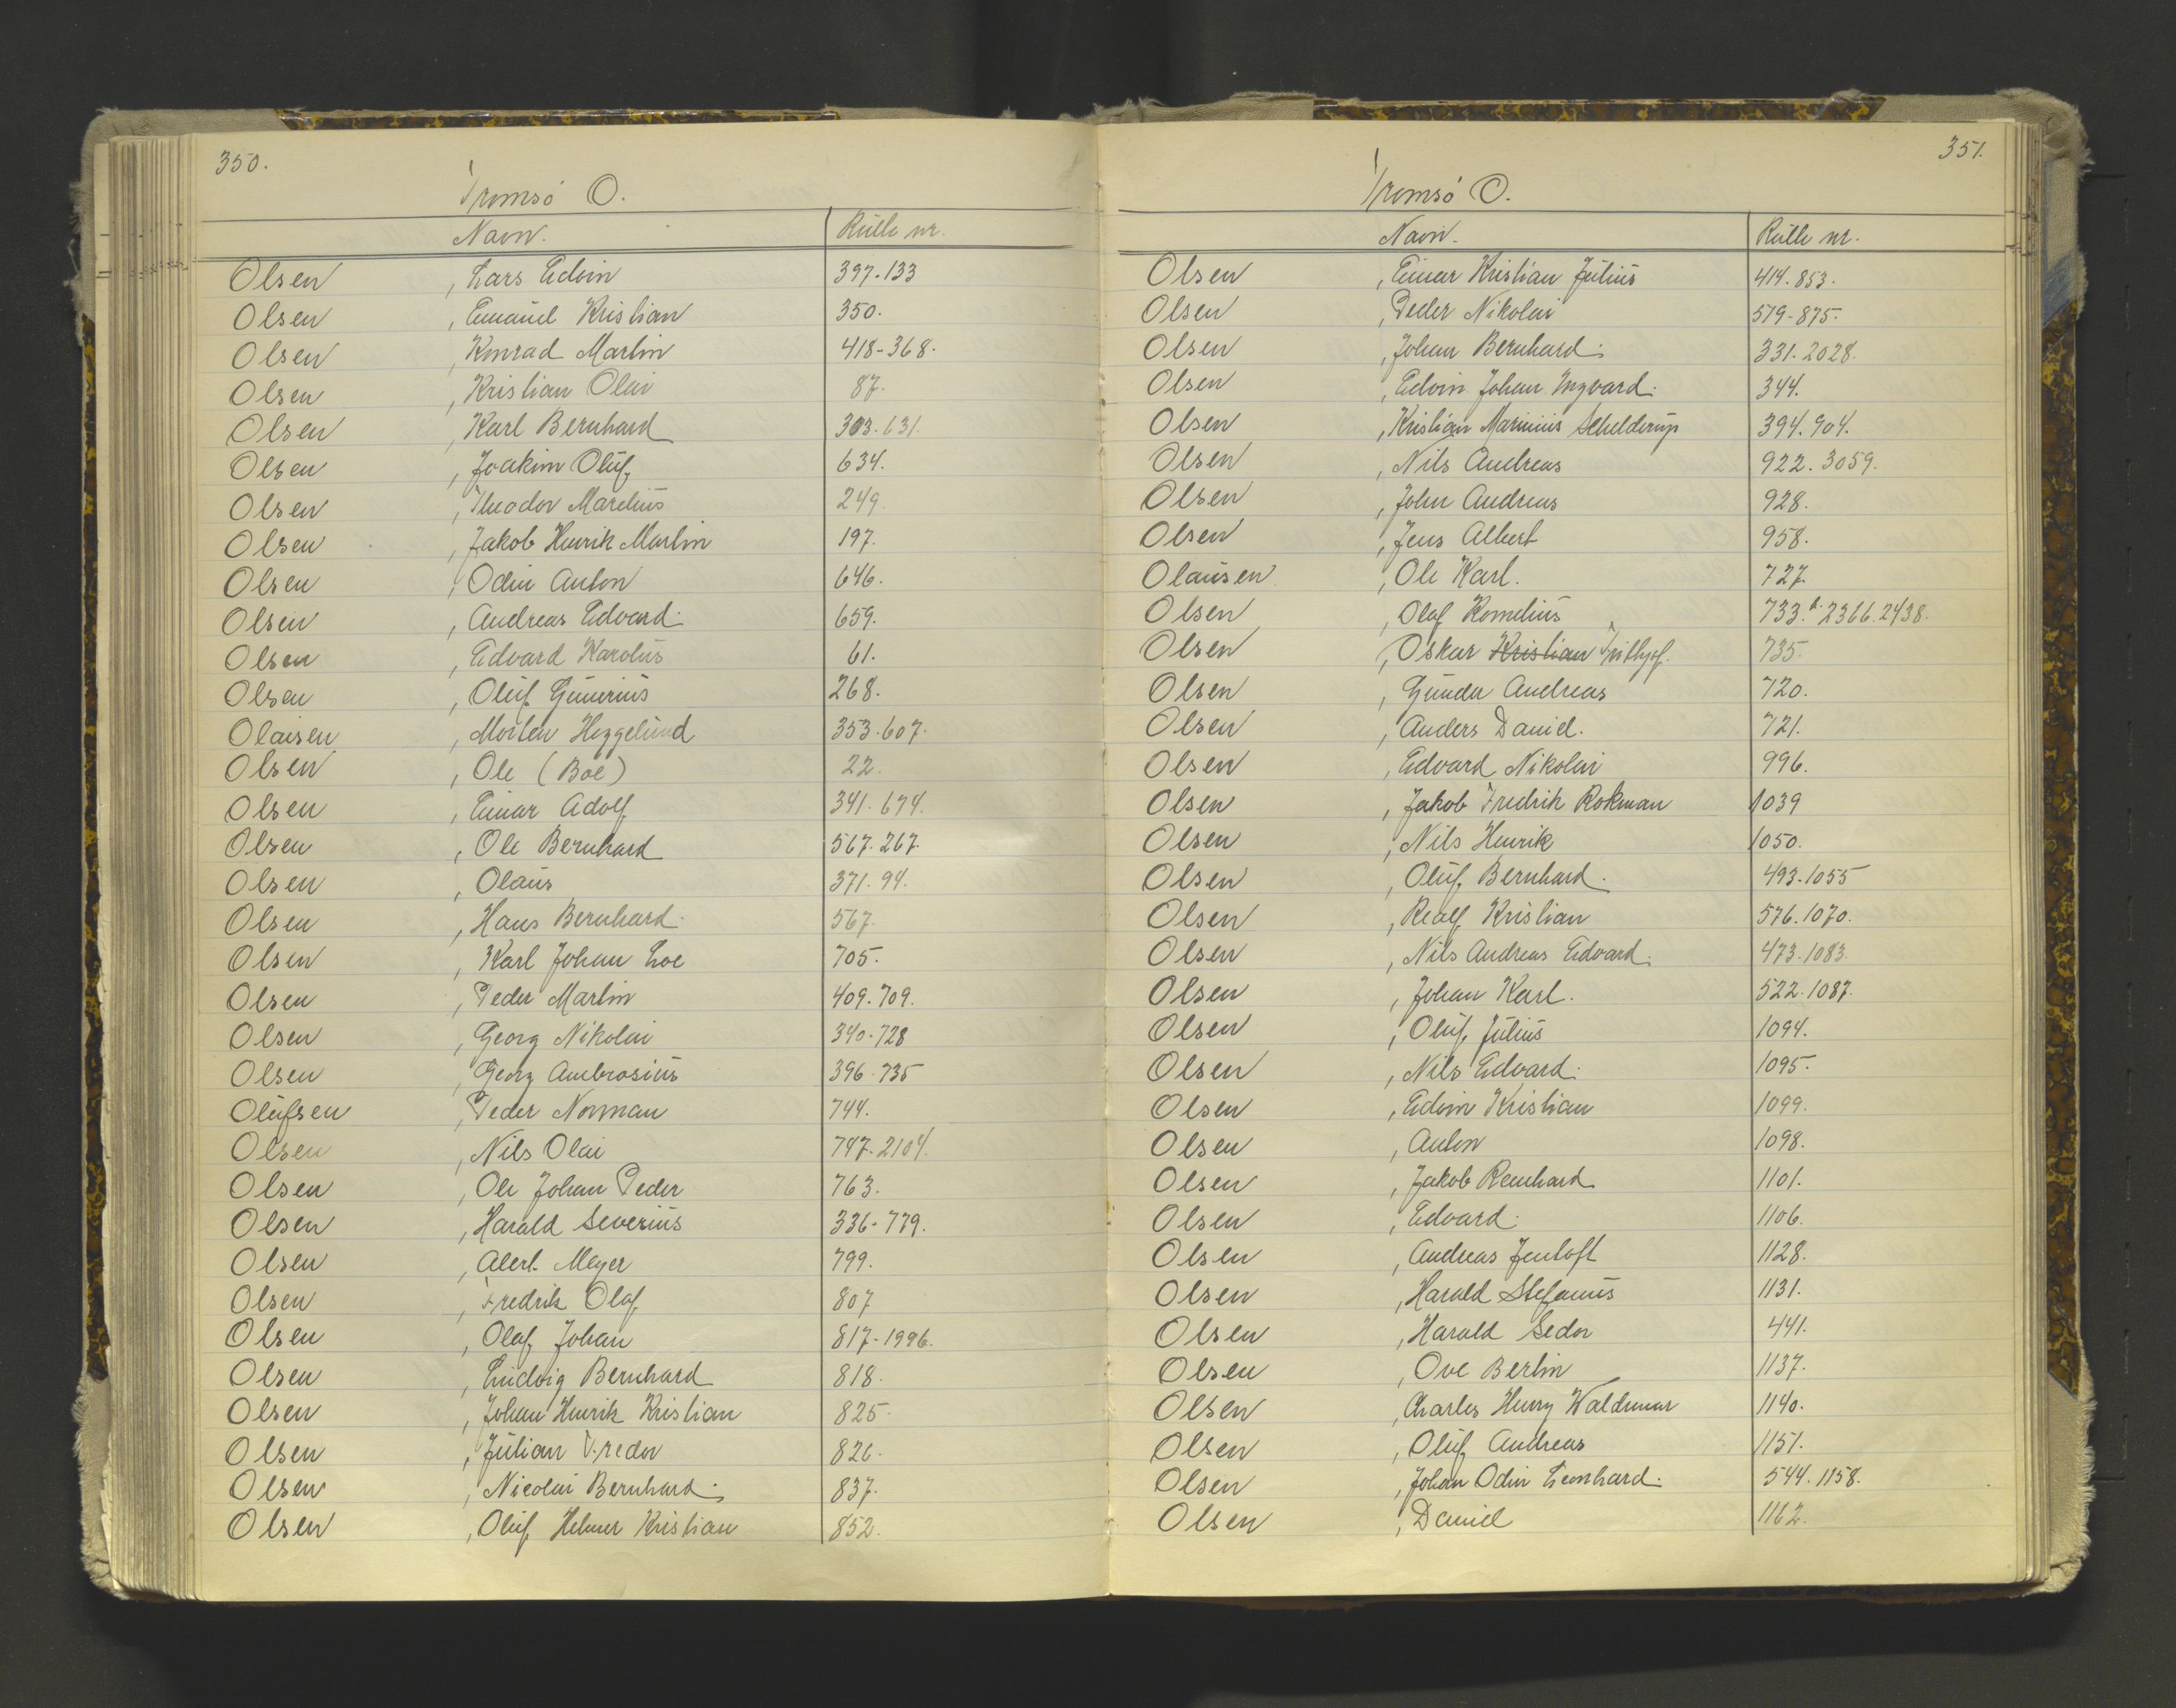 350.
Tromsø O.
Navn. Rulle nr.
Olsen , Lars Edvin 397-133
Olsen , Emanuel Kristian 350.
Olsen , Konrad Martin 418-368.
Olsen , Kristian Olai 87.
Olsen , Karl Bernhard 303.631.
Olsen , Joakim Oluf 634.
Olsen , Theodor Marelius 249.
Olsen , Jakob Henrik Martin 197.
Olsen , Odin Anton 646.
Olsen , Andreas Edvard. 659.
Olsen , Edvard Karolus 61.
Olsen , Oluf Gunerius 268.
Olaisen , Morten Heggelund 353.607.
Olsen , Ole (Boe) 22.
Olsen , Einar Adolf 341.674.
Olsen , Ole Bernhard 567.267.
Olsen , Olaus 371.94.
Olsen , Hans Bernhard. 567.
Olsen , Karl Johan Loe 705.
Olsen , Peder Martin 409.709.
Olsen , Georg Nikolai 340.728
Olsen , Georg Ambrosius 396.735
Olufsen , Peder Norman 744.
Olsen , Nils Olai 747-2104.
Olsen , Ole Johan Peder 763.
Olsen , Harald Severius 336-779.
Olsen , Alert Meyer 799.
Olsen , Fredrik Olaf 807
Olsen , Olaf Johan 817-1996.
Olsen , Ludvig Bernhard 818.
Olsen , Johan Henrik Kristian 825.
Olsen , Julian Fredor 826.
Olsen , Nicolai Bernhard. 837.
Olsen , Oluf Helmer Kristian 852.
351.
Tromsø O.
Navn. Rulle nr.
Olsen , Einar Kristian Julius 414.853.
Olsen , Peder Nikolai 579-875.
Olsen , Johan Bernhard. 331.2028.
Olsen , Edvin Johan Ingvard. 344.
Olsen , Kristian Marinius Schelderup 394.904.
Olsen , Nils Andreas 922.3059.
Olsen , John Andreas 928.
Olsen , Jens Albert 958.
Olausen , Ole Karl. 727.
Olsen , Olaf Kornelius 733.b.2366.2438.
Olsen , Oskar Kristian Frithjof. 735.
Olsen , Gunder Andreas 720.
Olsen , Anders Daniel. 721.
Olsen , Edvard Nikolai 996.
Olsen , Jakob Fredrik Rokman 1039
Olsen , Nils Henrik 1050.
Olsen , Oluf Bernhard. 493.1055
Olsen , Realf Kristian 576.1070.
Olsen , Nils Andreas Edvard. 473.1083.
Olsen , Johan Karl. 522.1087.
Olsen , Oluf Julius 1094.
Olsen , Nils Edvard. 1095.
Olsen , Edvin Kristian 1099.
Olsen , Anton 1098.
Olsen , Jakob Renhard 1101.
Olsen , Edvard. 1106.
Olsen , Andreas Jentoft 1128.
Olsen , Harald Stefanus 1131.
Olsen , Harald Sedor 441.
Olsen , Ove Bertin 1137.
Olsen , Charles Henry Waldemar 1140.
Olsen , Oluf Andreas 1151.
Olsen , Johan Odin Leonhard. 544.1158.
Olsen , Daniel 1162.